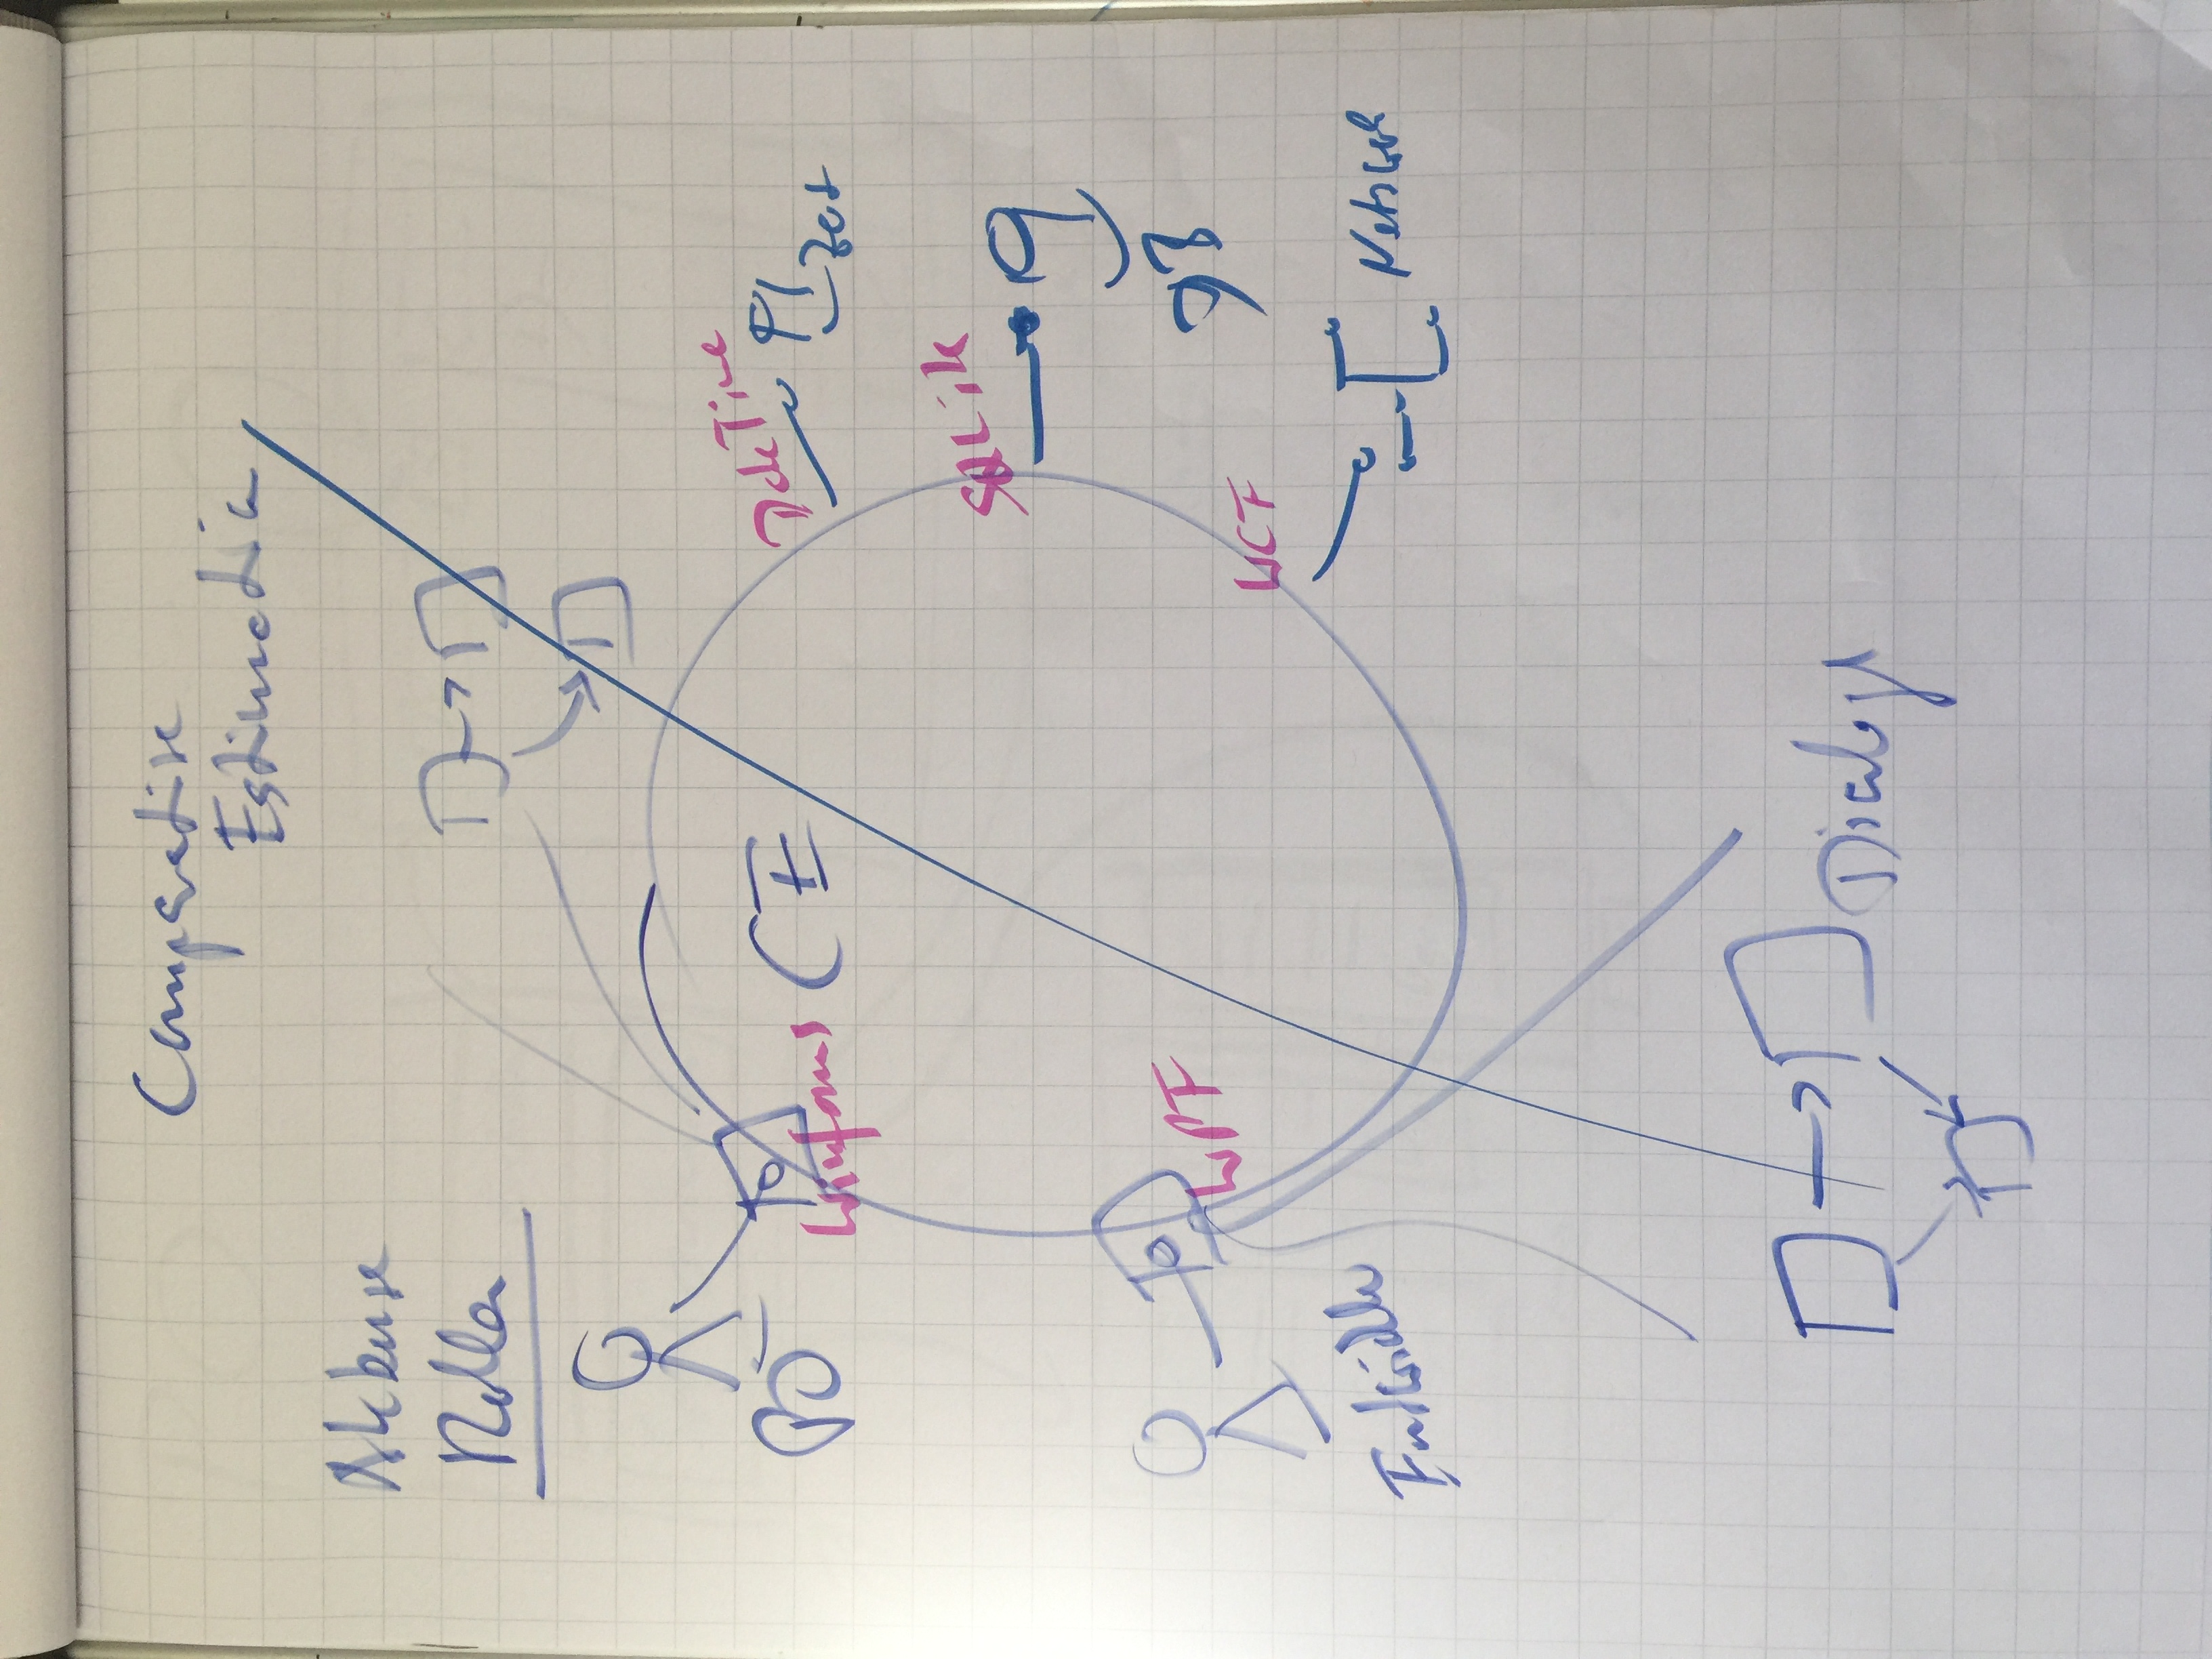 Comparative
Estimation
Akteure
Rollen
PO
Winforms
CE
DateTime
Zeit
SQLite
DB
WPF
WCF
Entwickler
Network
Dialoge